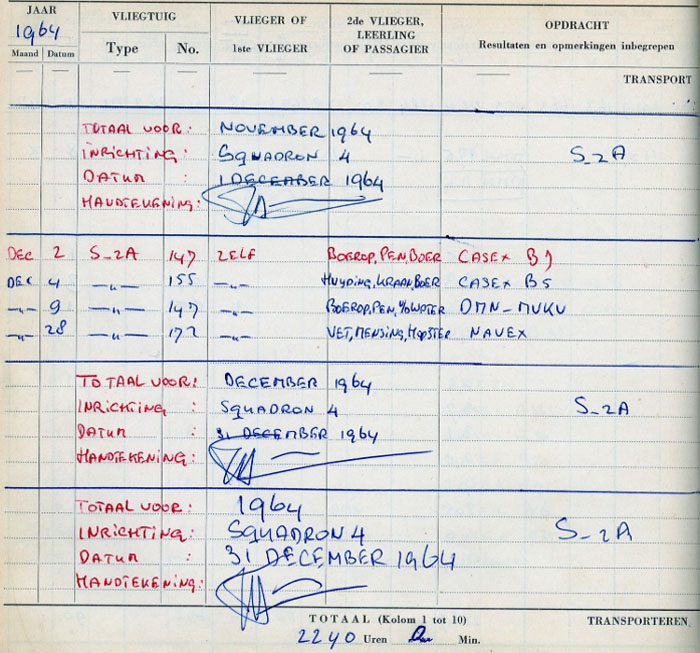 JAAR VLIEGTUIG VLIEGER OF 2de VLIEGER, OPDRACHT
1964 1ste VLIEGER LEERLING Resultaten en opmerkingen inbegrepen
Maand Datum Type No. OF PASSAGIER
TRANSPORT
TOTAAL VOOR: NOVEMBER 1964
INRICHTING: SQUADRON 4 S-2A
DATUM : 1 DECEMBER 1964
HANDTEKENING:
DEC 2 S-2A 147 ZELF BOEROP, PEN, BOER CASEX
DEC 4 -„- 155 -„- HUYDING, KRAAN, BOER CASEX B5
-„- 9 -„- 147 -„- BOEROP, PEN, DMN-MUKU
-„- 28 -„- 172 -„- VET, MENSING, NAVEX
TOTAAL VOOR: DECEMBER 1964
INRICHTING : SQUADRON 4 S-2A
DATUM : 31 DECEMBER 1964
HANDTEKENING:
TOTAAL VOOR: 1964
INRICHTING: SQUADRON 4 S-2A
DATUM : 31 DECEMBER 1964
HANDTEKENING:
TOTAAL (Kolom 1 tot 10) TRANSPORTEREN
2240 Uren Min.